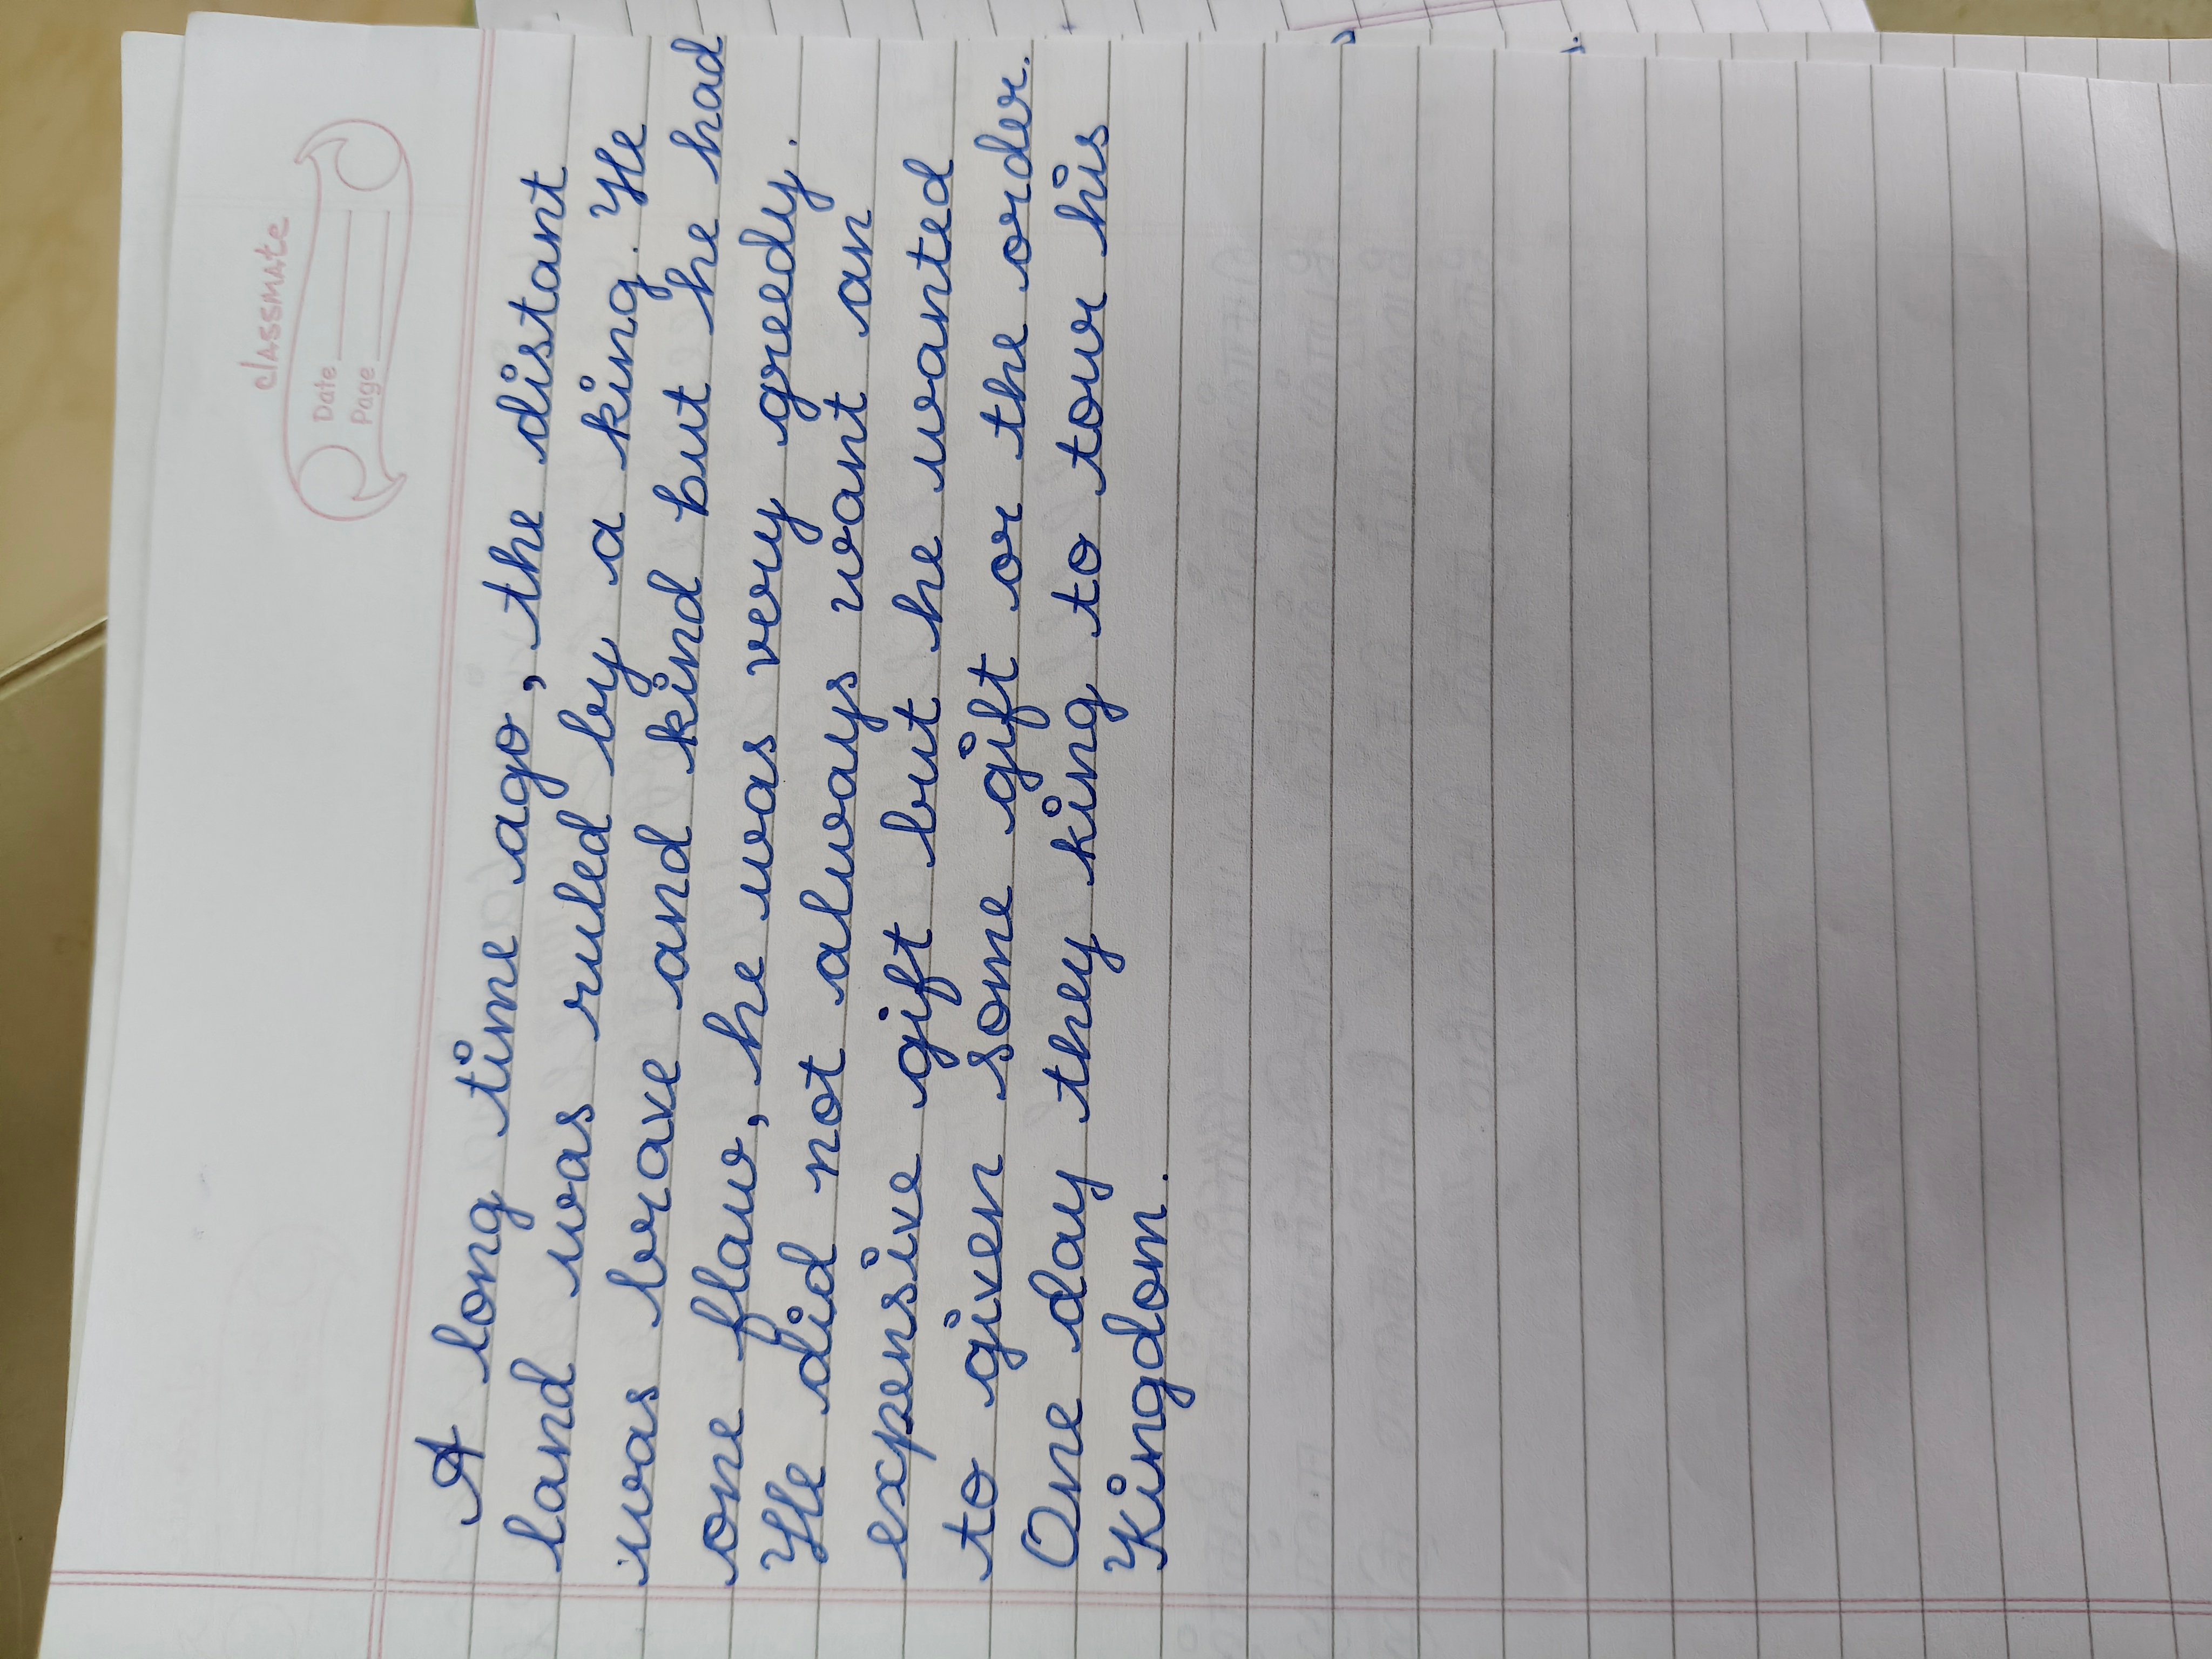 classmate
Date
Page
A long time ago, the distant
land was ruled by a king. He
was brave and kind but he had
one flaw, he was very greedy.
He did not always want an
expensive gift but he wanted
to given some gift or the order.
One day they king to tour his
Kingdom.